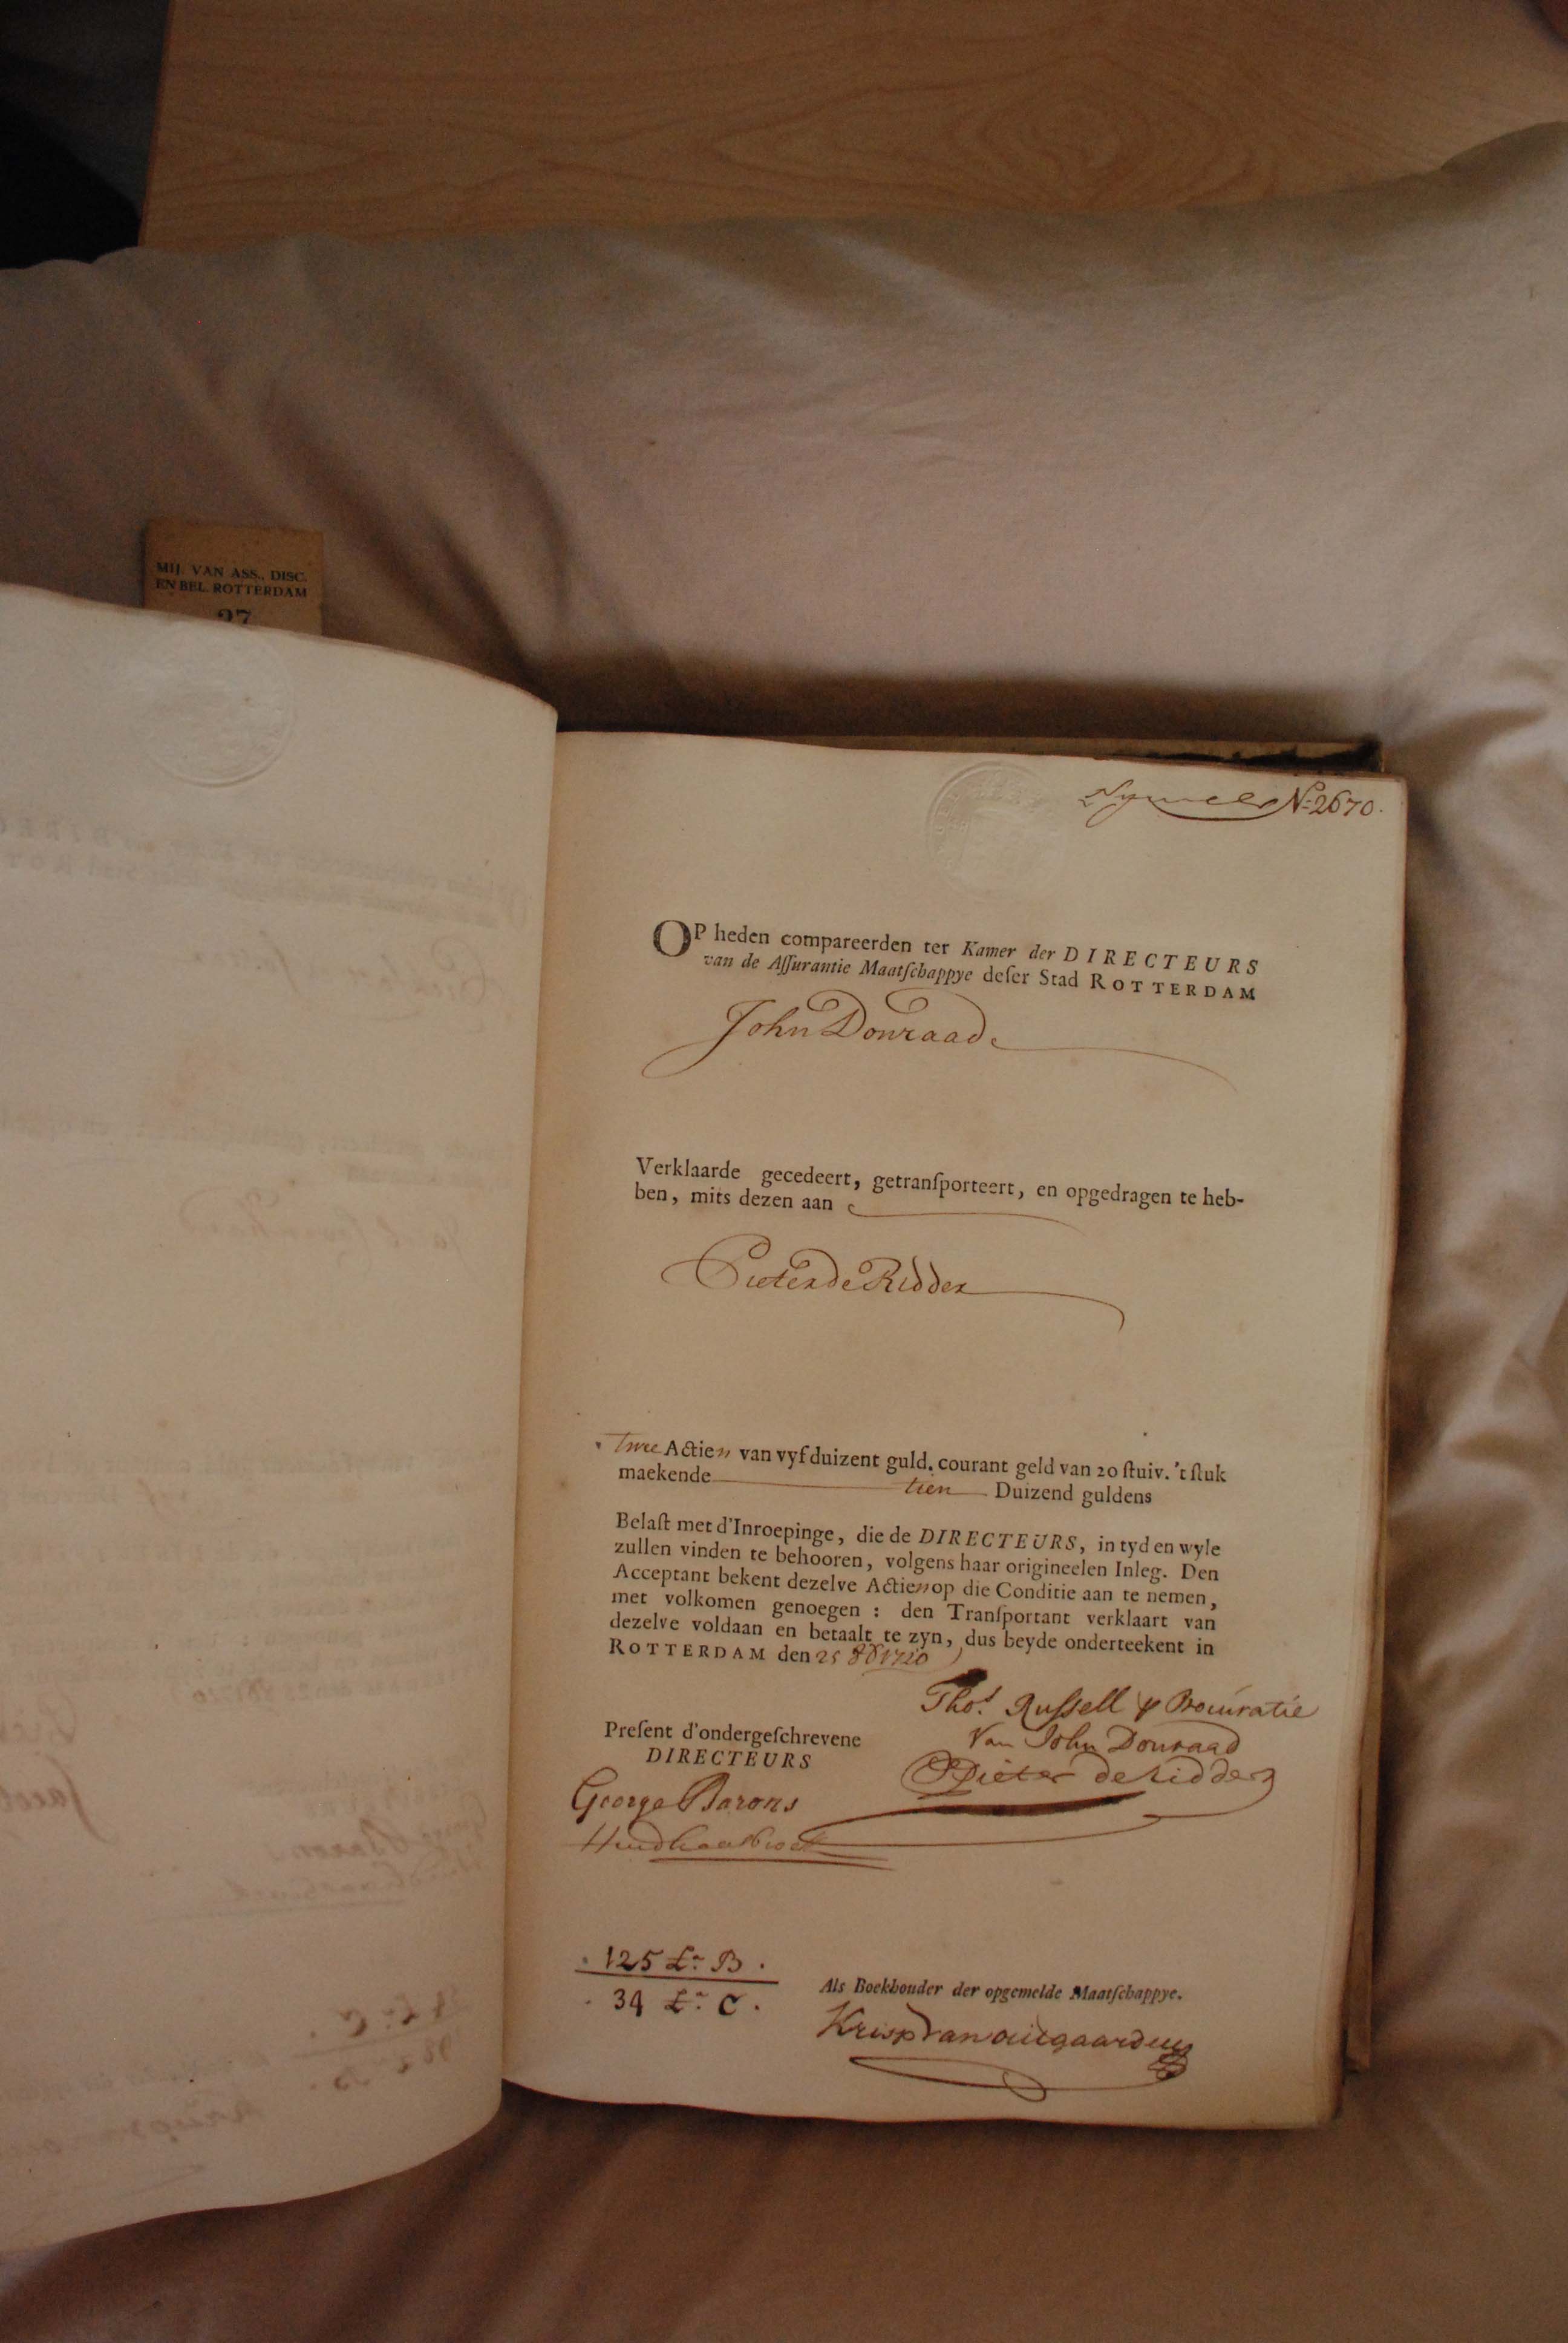 MIJ. VAN ASS., DISC.
EN BEL. ROTTERDAM
37
No: 2670.
OP heden compareerden ter Kamer der DIRECTEURS
van de Aſſurantie Maatſchappye deſer Stad ROTTERDAM
John Donraad
Verklaarde gecedeert, getranſporteert, en opgedragen te heb-
ben, mits dezen aan
Pieter de Ridder
Twee Actien van vyfduizent guld. courant geld van 20 ſtuiv. 't ſtuk
maekende tien Duizend guldens
Belaſt met d'Inroepinge, die de DIRECTEURS, in tyd en wyle
zullen vinden te behooren, volgens haar origineelen Inleg. Den
Acceptant bekent dezelve Actien op die Conditie aan te nemen,
met volkomen genoegen : den Tranſportant verklaart van
dezelve voldaan en betaalt te zyn, dus beyde onderteekent in
ROTTERDAM den 25 8b 1720
Thos. Ruſsell p Procuratie
Van John Donraad
Preſent d'ondergeſchrevene
DIRECTEURS
Pieter de Ridder
George Barons
125 La. B.
34 La. C.
Als Boekhouder der opgemelde Maatſchappye.
Krisp van outgaarden